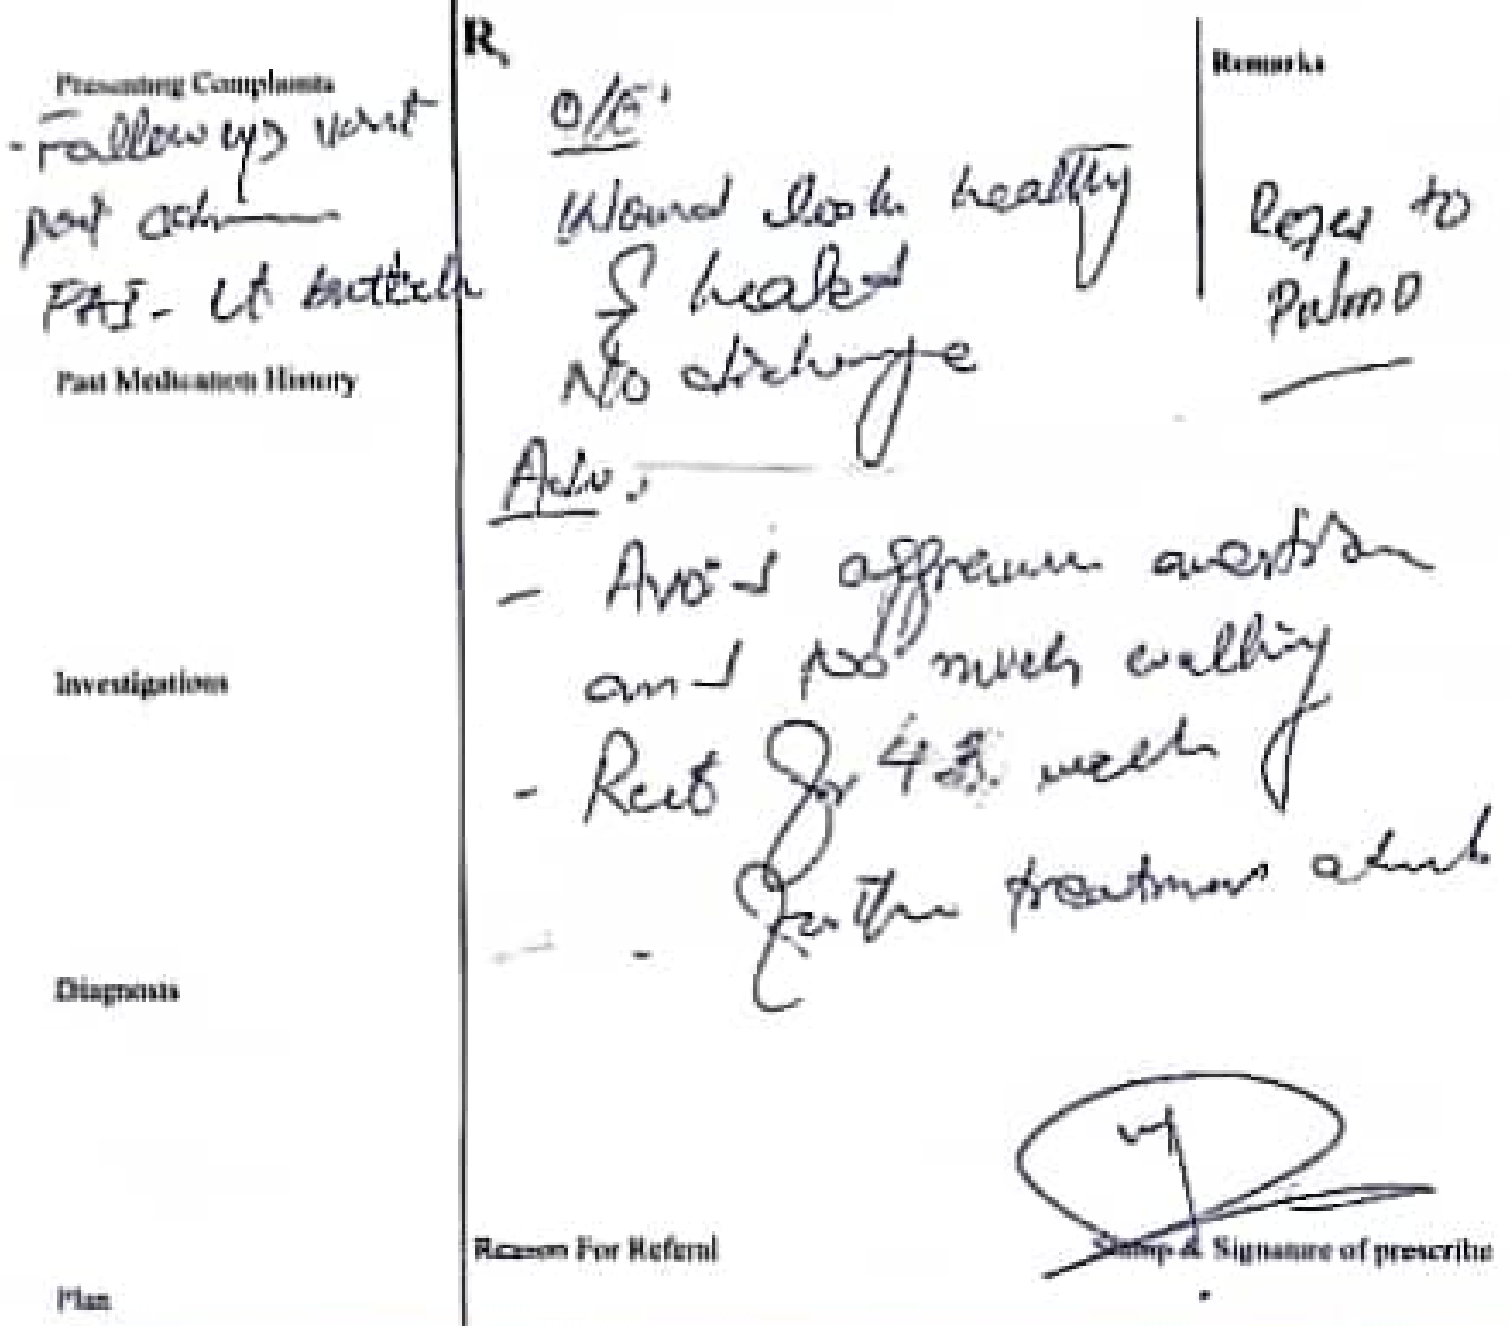 Rx
Presenting Complaints
- Follow up visit
post
FAI - Lt buttock
Past Medication History
Investigations
Diagnosis
Plan
O/E:
Wound look healthy
& healed
No discharge
Adv:
- Avoid exertion
and too much walking
- Rest for 4 weeks
- Further treatment
Reason For Referal
Remarks
Refer to
PulmO
Stamp & Signature of prescribe